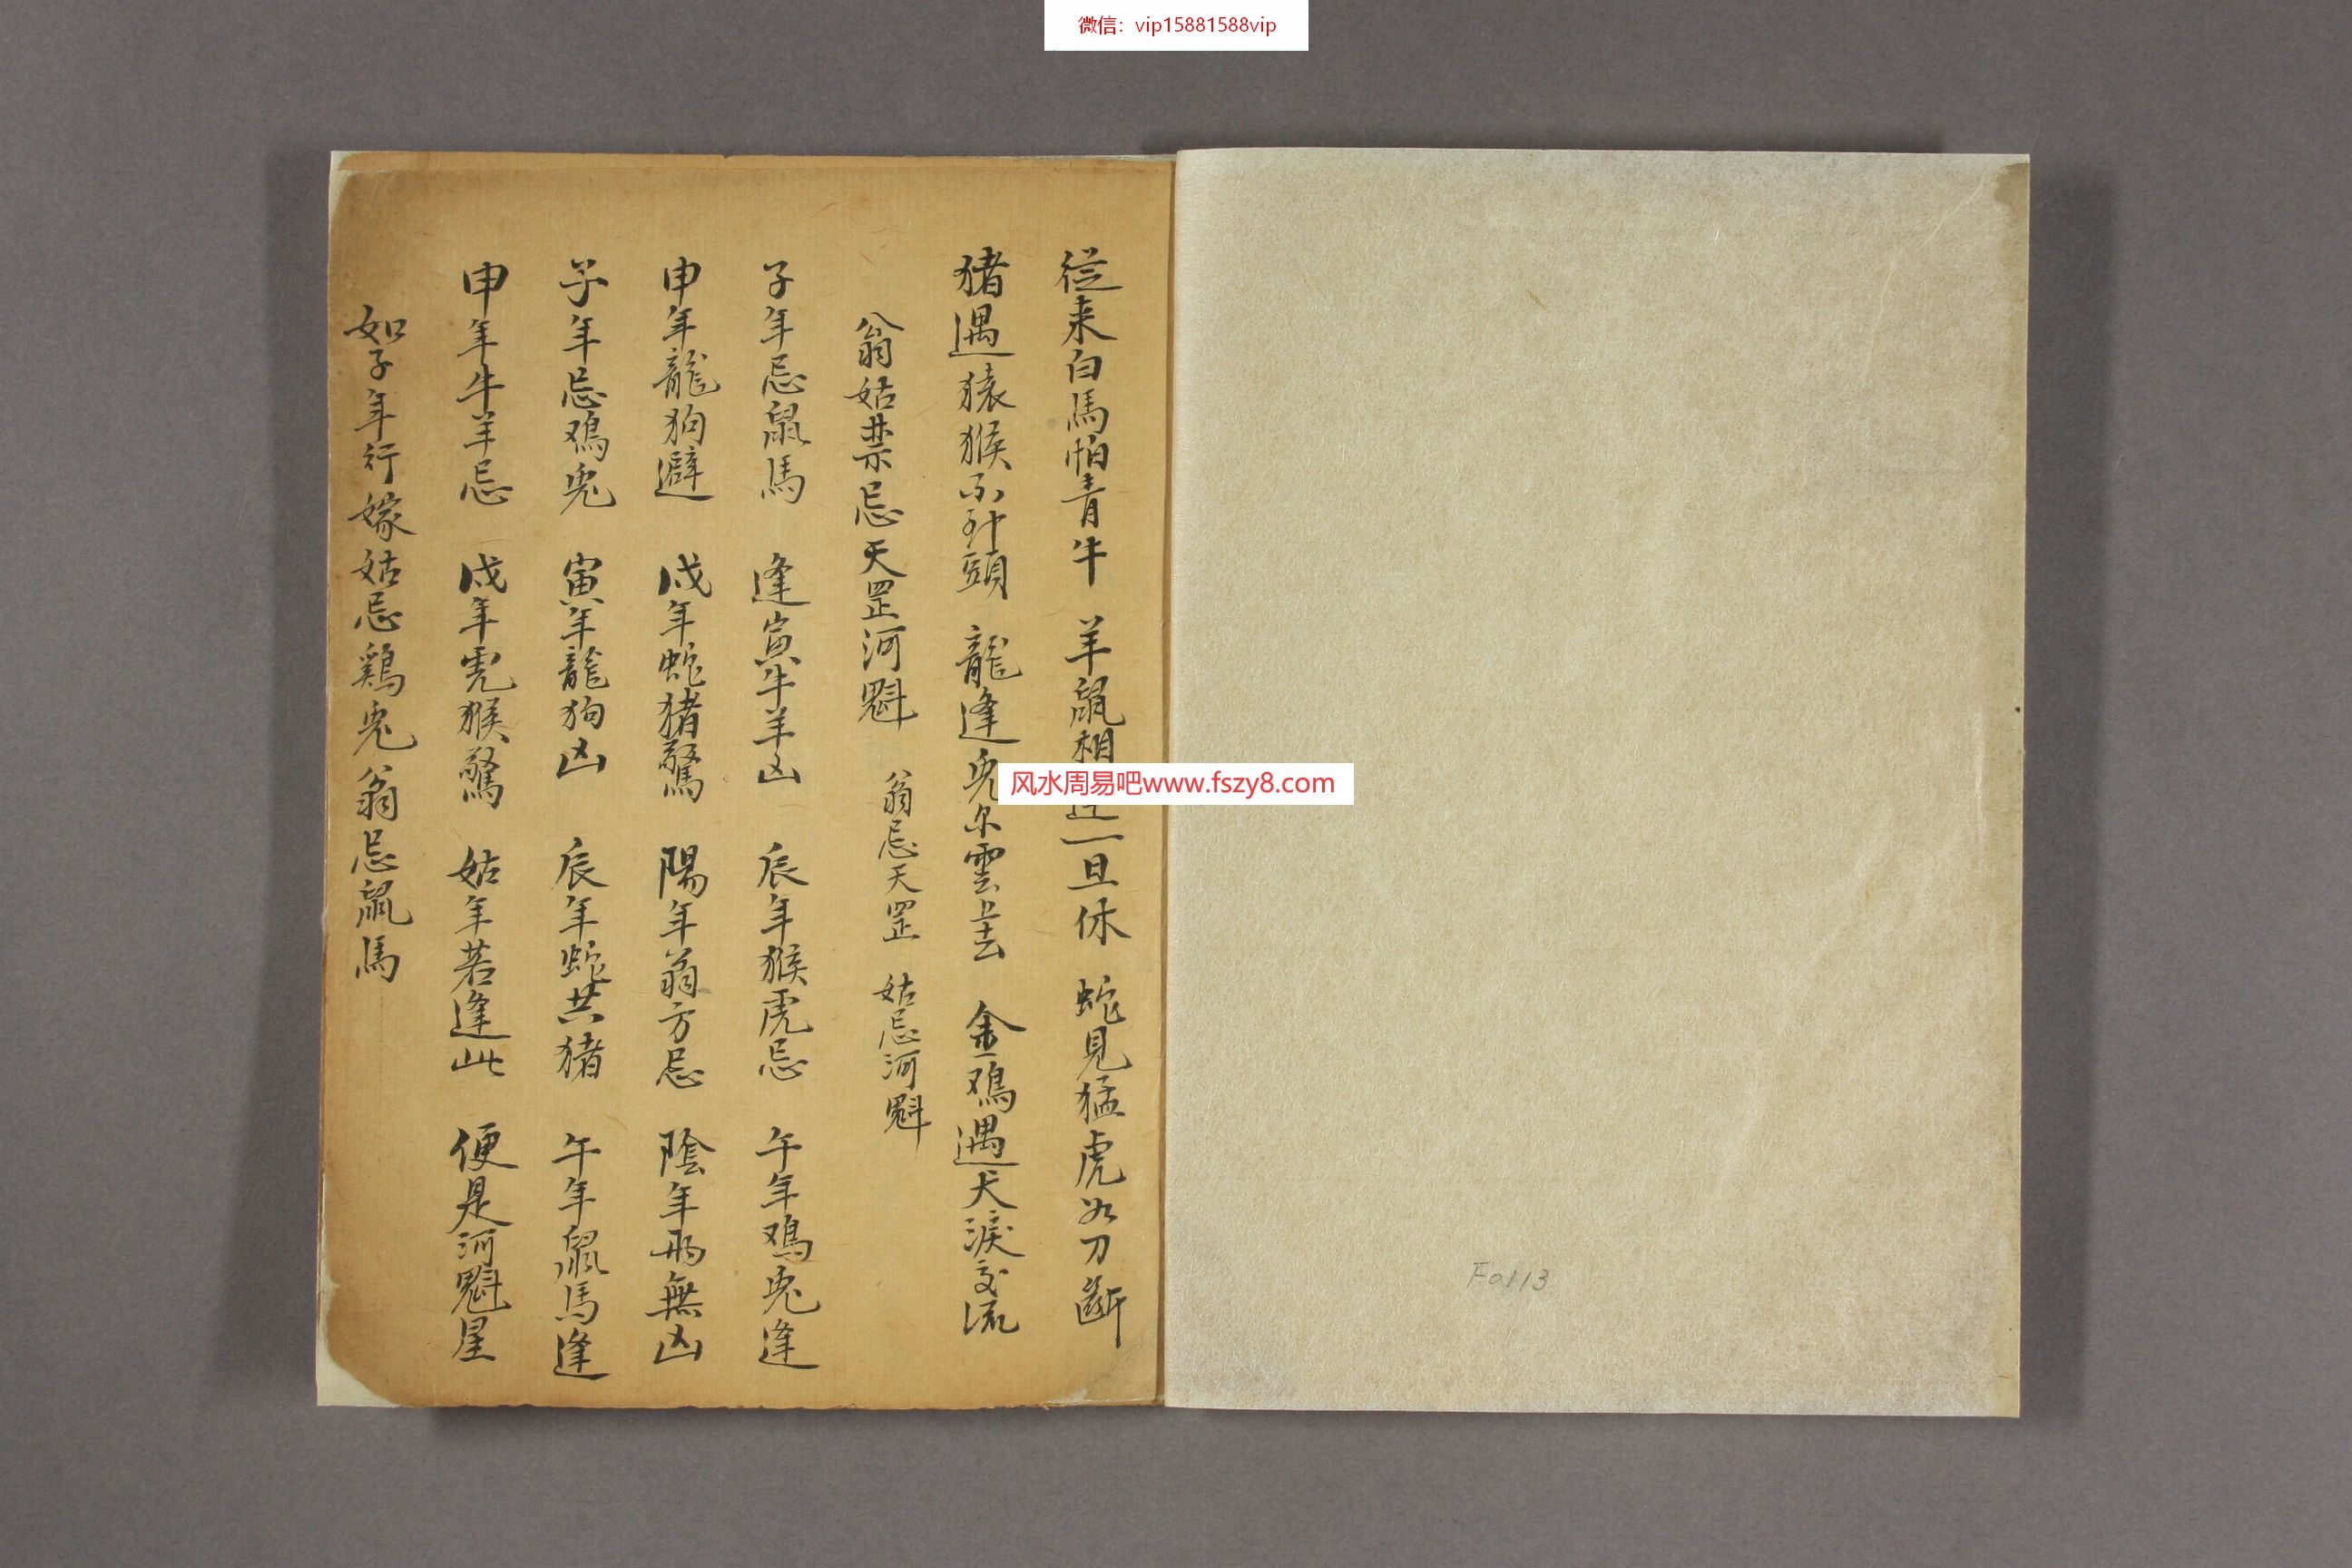 微信：vip15881588vip
從来白馬怕青牛 羊鼠相 一旦休 蛇見猛虎如刀斷
猪遇猿猴不到頭 龍逢兔尔雲上去 金鳮遇犬淚交流
翁姑禁忌天罡河魁 翁忌天罡 姑忌河魁
子年忌鼠馬 逢寅牛羊凶 辰年猴虎忌 午年鳮兔逢
申年龍狗避 戌年蛇猪驚 陽年翁方忌 陰年两無凶
子年忌鳮兔 寅年龍狗凶 辰年蛇共猪 午年鼠馬逢
申年牛羊忌 戌年虎猴驚 姑年若逢此 便是河魁星
如子年行嫁姑忌鷄兔翁忌鼠馬
风水周易吧www.fszy8.com
F0113